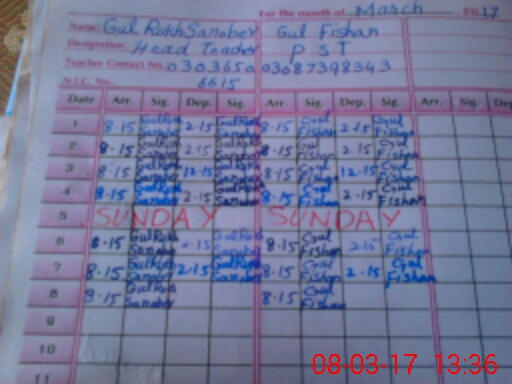 For the month of March, 2017
Name: Gul Rukh Sanober Gul Fishan
Designation: Head Teacher P S T
Teacher Contact No. 0303650 03087398343
N.I.C. No.: 6615
Date Arr. Sig. Dep. Sig. Arr. Sig. Dep. Sig. Arr. Sig. Dep
1 8.15 Gul Rukh Sanober 2.15 Gul Rukh Sanober 8.15 Gul Fishan 2.15 Gul Fishan
2 8.15 Gul Rukh Sanober 2.15 Gul Rukh Sanober 8.15 Gul Fishan 2.15 Gul Fishan
3 8.15 Gul Rukh Sanober 12.15 Gul Rukh Sanober 8.15 Gul Fishan 12.15 Gul Fishan
4 8.15 Gul Rukh Sanober 2.15 Gul Rukh Sanober 8.15 Gul Fishan 2.15 Gul Fishan
5 SUNDAY SUNDAY
6 8.15 Gul Rukh Sanober 2.15 Gul Rukh Sanober 8.15 Gul Fishan 2.15 Gul Fishan
7 8.15 Gul Rukh Sanober 2.15 Gul Rukh Sanober 8.15 Gul Fishan 2.15 Gul Fishan
8 8.15 Gul Rukh Sanober 8.15 Gul Fishan
9
10
11
08-03-17 13:36